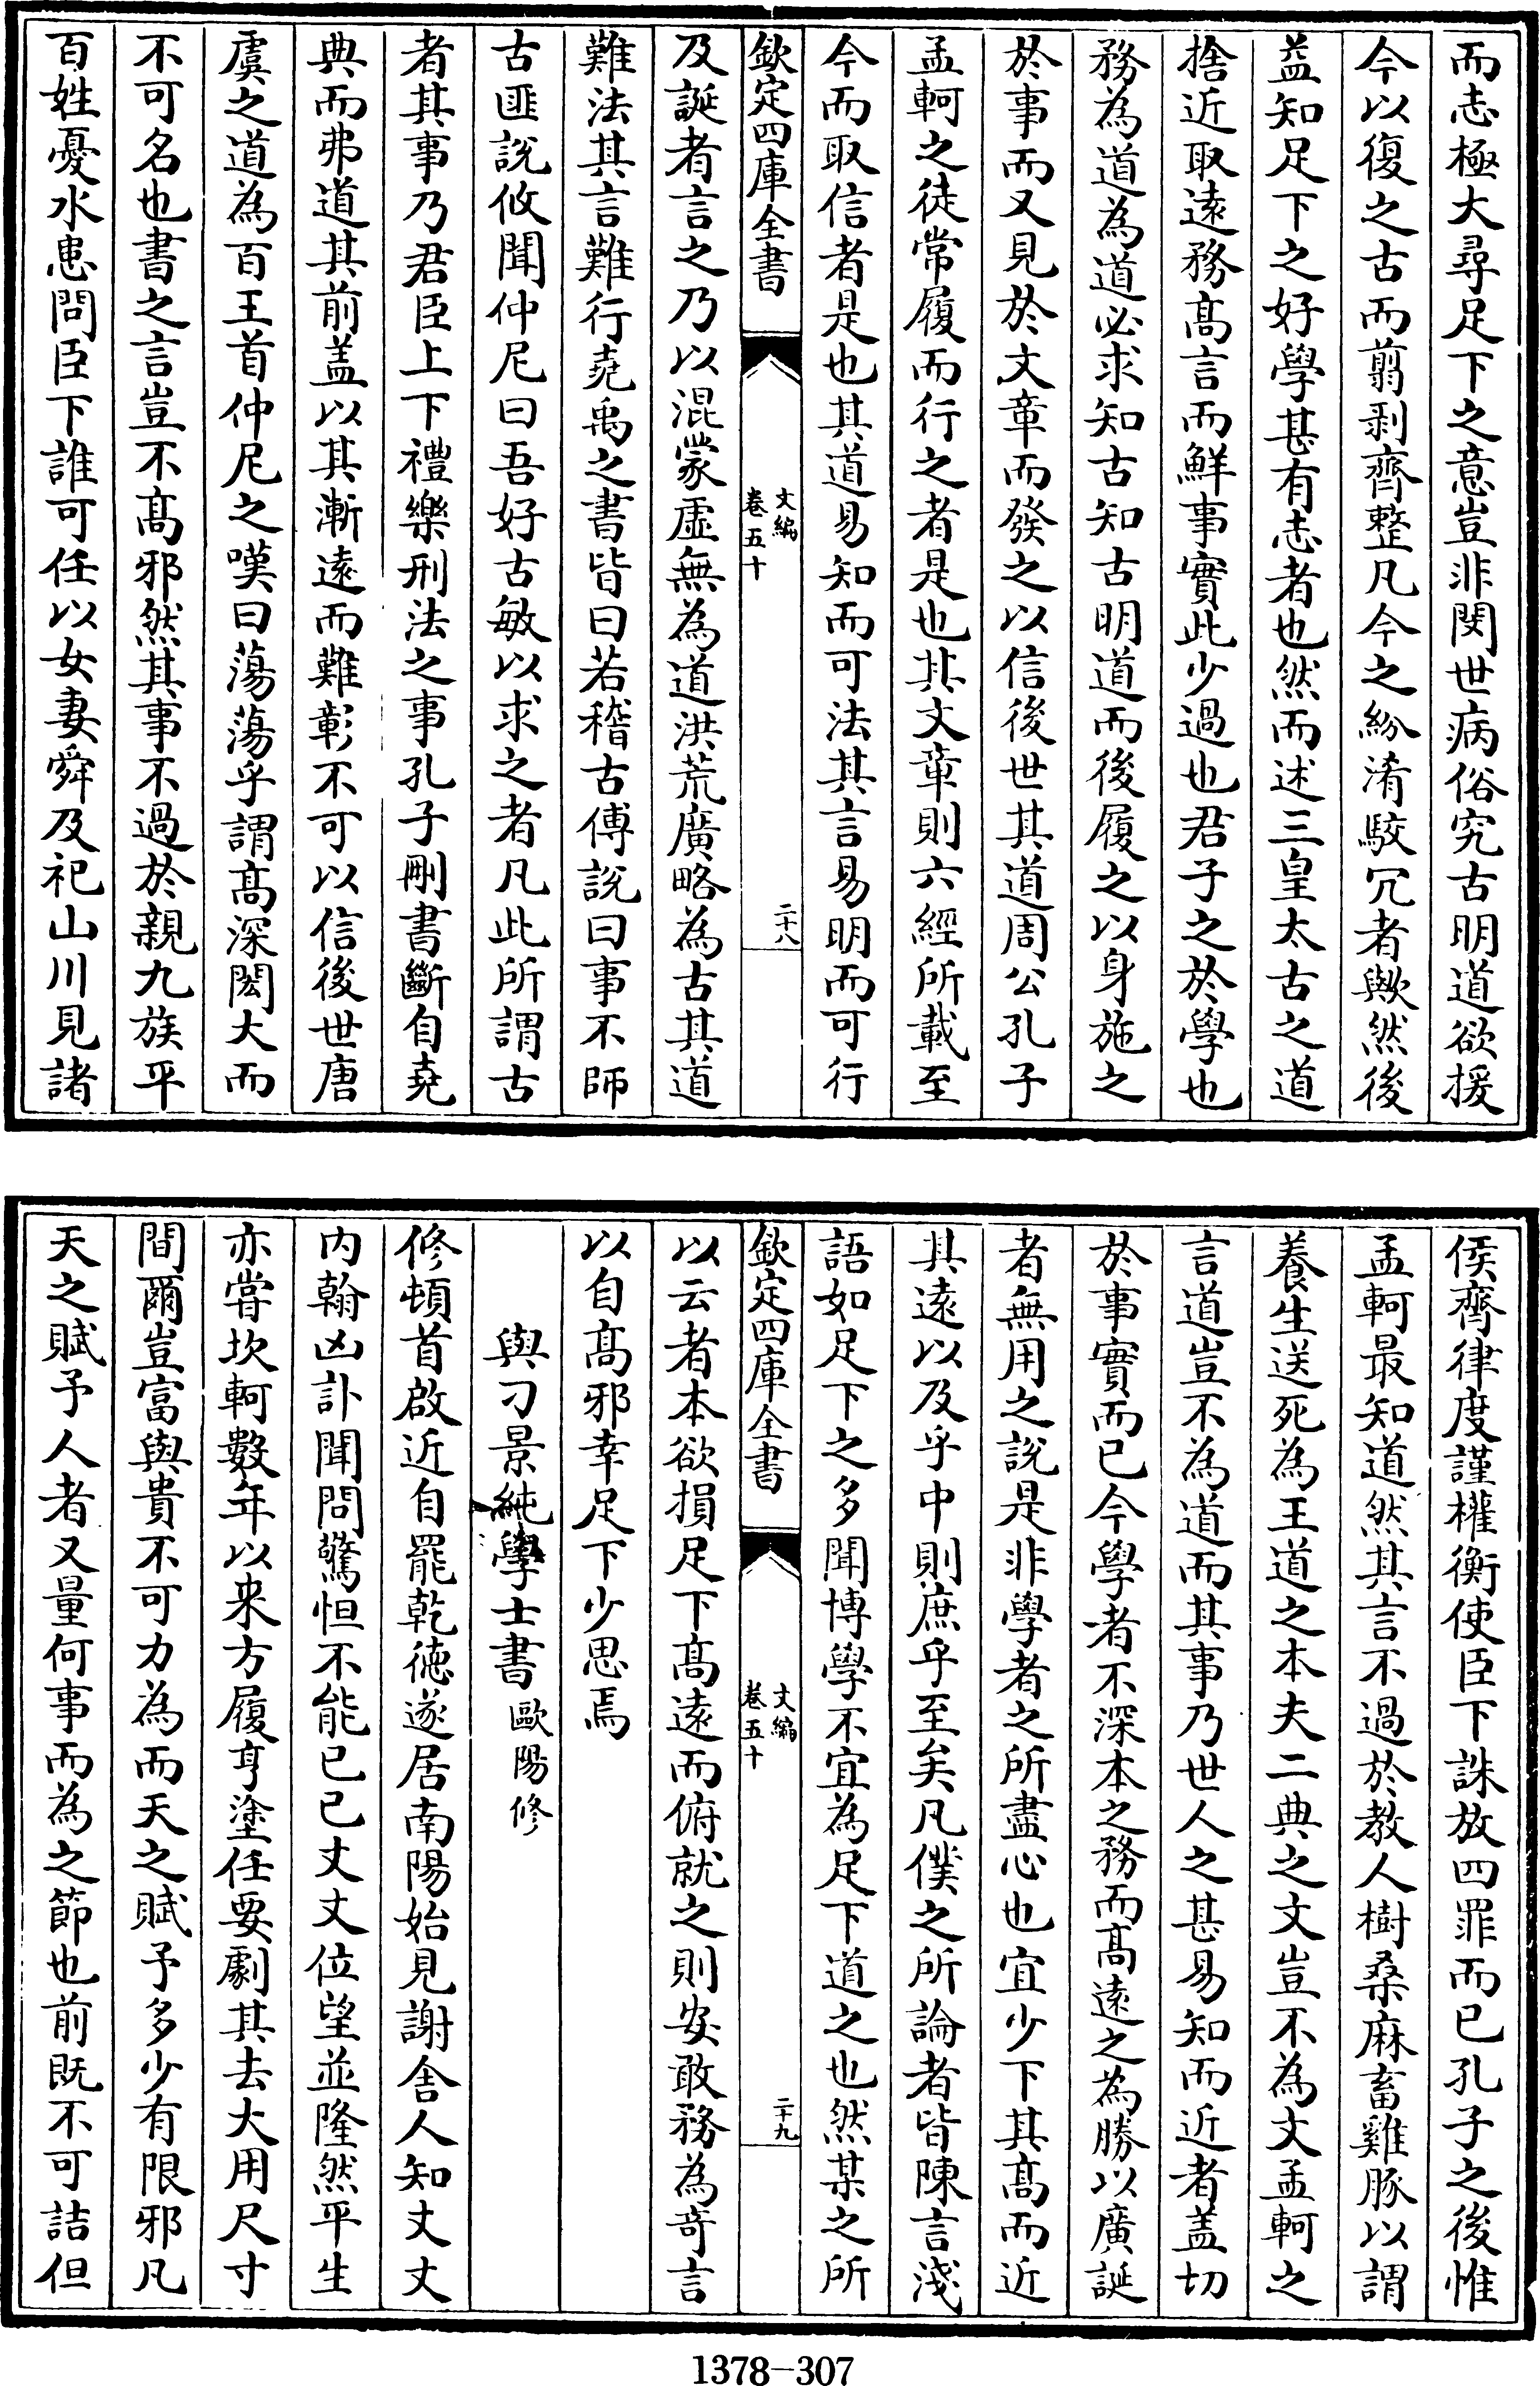 而志極大尋足下之意豈非閔世病俗究古明道欲援
今以復之古而翦剥齊整凡今之紛淆駮冗者歟然後
益知足下之好學甚有志者也然而述三皇太古之道
捨近取逺務髙言而鮮事實此少過也君子之於學也
務為道為道必求知古知古明道而後履之以身施之
於事而又見於文章而發之以信後世其道周公孔子
孟軻之徒常履而行之者是也其文章則六經所載至
今而取信者是也其道易知而可法其言易明而可行
欽定四庫全書
文編
卷五十
二十八
及誕者言之乃以混蒙虛無為道洪荒廣略為古其道
難法其言難行堯禹之書皆曰若稽古傅說曰事不師
古匪說攸聞仲尼曰吾好古敏以求之者凡此所謂古
者其事乃君臣上下禮樂刑法之事孔子刪書斷自堯
典而弗道其前盖以其漸逺而難彰不可以信後世唐
虞之道為百王首仲尼之嘆曰蕩蕩乎謂髙深閎大而
不可名也書之言豈不髙邪然其事不過於親九族平
百姓憂水患問臣下誰可任以女妻舜及祀山川見諸
侯齊律度謹權衡使臣下誅放四罪而已孔子之後惟
孟軻最知道然其言不過於教人樹桑麻畜雞豚以謂
養生送死為王道之本夫二典之文豈不為文孟軻之
言道豈不為道而其事乃世人之甚易知而近者盖切
於事實而已今學者不深本之務而髙逺之為勝以廣誕
者無用之說是非學者之所盡心也宜少下其髙而近
其逺以及乎中則庶乎至矣凡僕之所論者皆陳言淺
語如足下之多聞博學不宜為足下道之也然某之所
欽定四庫全書
文編
卷五十
二十九
以云者本欲損足下髙逺而俯就之則安敢務為竒言
以自髙邪幸足下少思焉
與刁景純學士書 歐陽修
修頓首啟近自罷乾徳遂居南陽始見謝舍人知丈丈
内翰凶訃聞問驚怛不能已已丈丈位望並隆然平生
亦嘗坎軻數年以来方履亨塗任要劇其去大用尺寸
間爾豈富與貴不可力為而天之賦予多少有限邪凡
天之賦予人者又量何事而為之節也前既不可詰但
1378-307